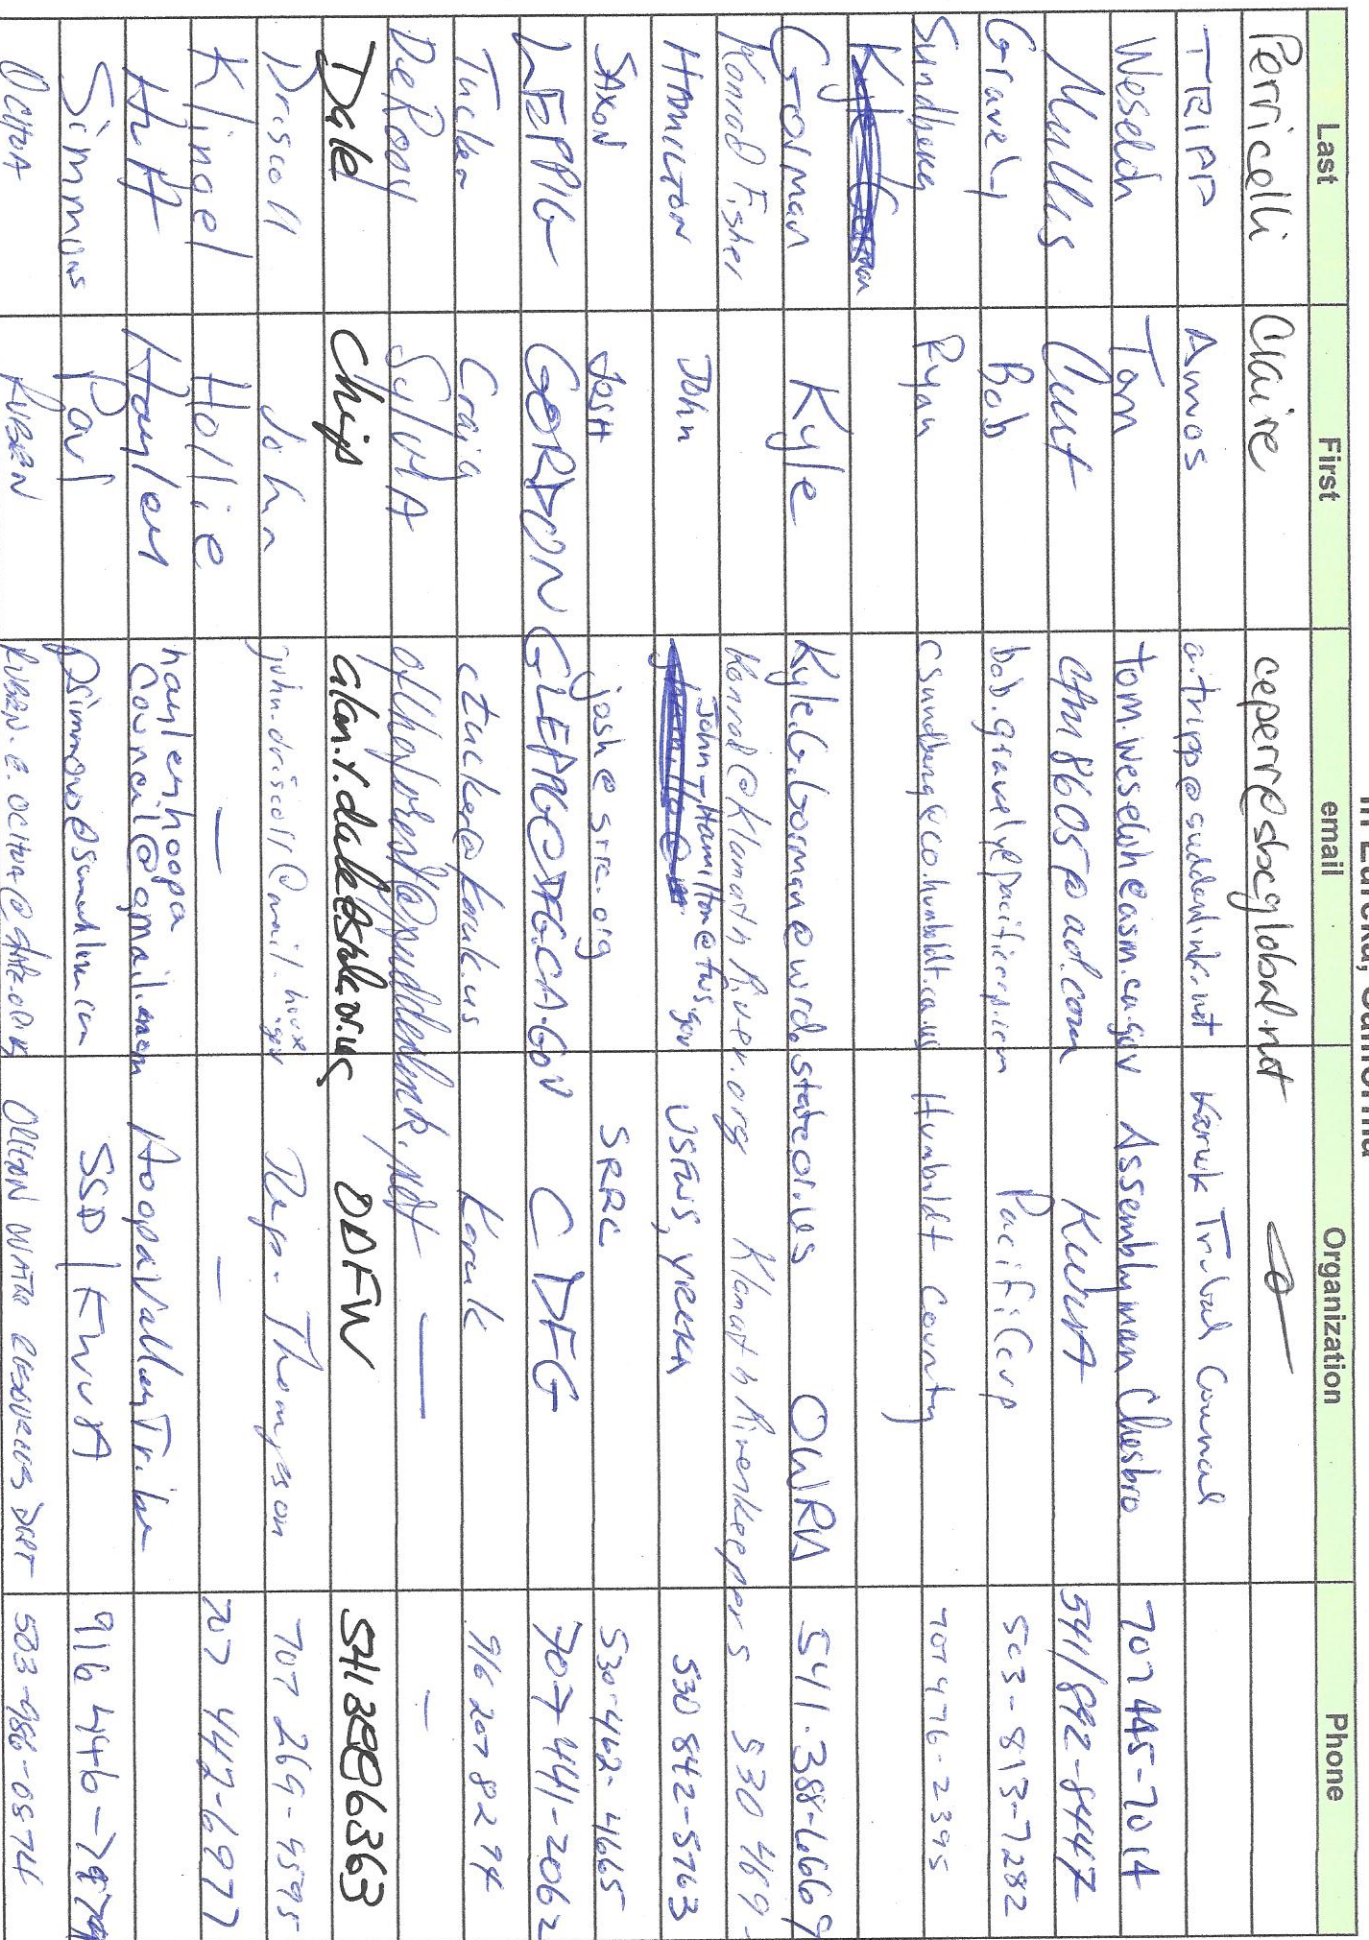 in Eureka, California
Last First email Organization Phone
Perricelli Claire ceperr@sbcglobal.net
TRIPP Amos atripp@suddenlink.net Karuk Tribal Council
Weseloh Tom tom.weseloh@asm.ca.gov Assemblyman Chesbro 707 445-7014
Mullis Curt cfm8605@aol.com KWUA 541/892-8447
Gravely Bob bob.gravely@pacificorp.com PacifiCorp 503-813-7282
Sundberg Ryan rsundberg@co.humboldt.ca.us Humboldt County 707 476-2395
Kyle Gorman
Gorman Kyle Kyle.G.Gorman@wrd.state.or.us OWRD 541-388-6669
Konrad Fisher Konrad@KlamathRiver.org Klamath Riverkeepers 530 469-
HAMILTON John John_Hamilton@fws.gov USFWS, YREKA 530 842-5763
SAXON JOSH josh@srrc.org SRRC 530-462-4665
LEPPIG GORDON GLEPPIG@DFG.CA.GOV CDFG 707-441-2062
Tucker Craig ctucker@karuk.us Karuk 916 207 8294
DeRooy SYLVIA @suddenlink.net — —
Dale Chip alan.r.dale@state.or.us ODFW 5413886363
Driscoll John john.driscoll@mail.house.gov Rep. Thompson 707 269-9595
Klingel Hollie — — 707 442-6977
Hutt Hayley hayleyhoopa
council@gmail.com Hoopa Valley Tribe
Simmons Paul psimmons@somachlaw.com SSD/KWUA 916 446-7979
OCHOA RUBEN RUBEN.E.OCHOA@STATE.OR.US OREGON WATER RESOURCES DEPT 503-986-0874